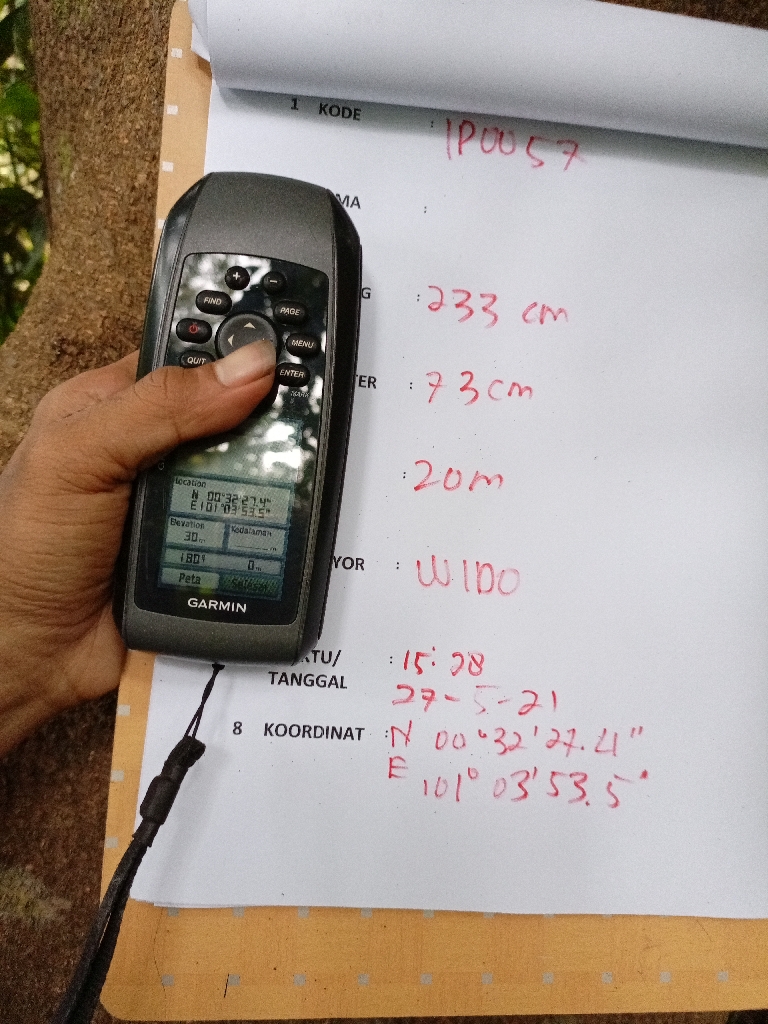 1 KODE : IP0057
MA :
G : 233 cm
TER : 73 cm
: 20 m
YOR : WIDO
KTU/ : 15:28
TANGGAL 27-5-21
8 KOORDINAT : N 00°32'27.4"
E 101°03'53.5"
+ -
FIND PAGE
MENU
QUIT ENTER
MARK
Location
N 00°32'27.4"
E101°03'53.5"
Elevation Kedalaman
30m
180° 0m
Peta
GARMIN